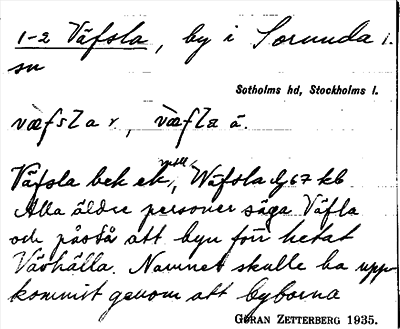 1-2 Väfsla, by i Sorunda s:
sn
Sotholms hd, Stockholms l.
Väfsla bek ek, Wäfsla 67 kb
Alla äldre personer säga Väfla
och påstå att byn förr hetat
Vävhälla. Namnet skulle ha upp-
kommit genom att byborna
GÖRAN ZETTERBERG 1935.